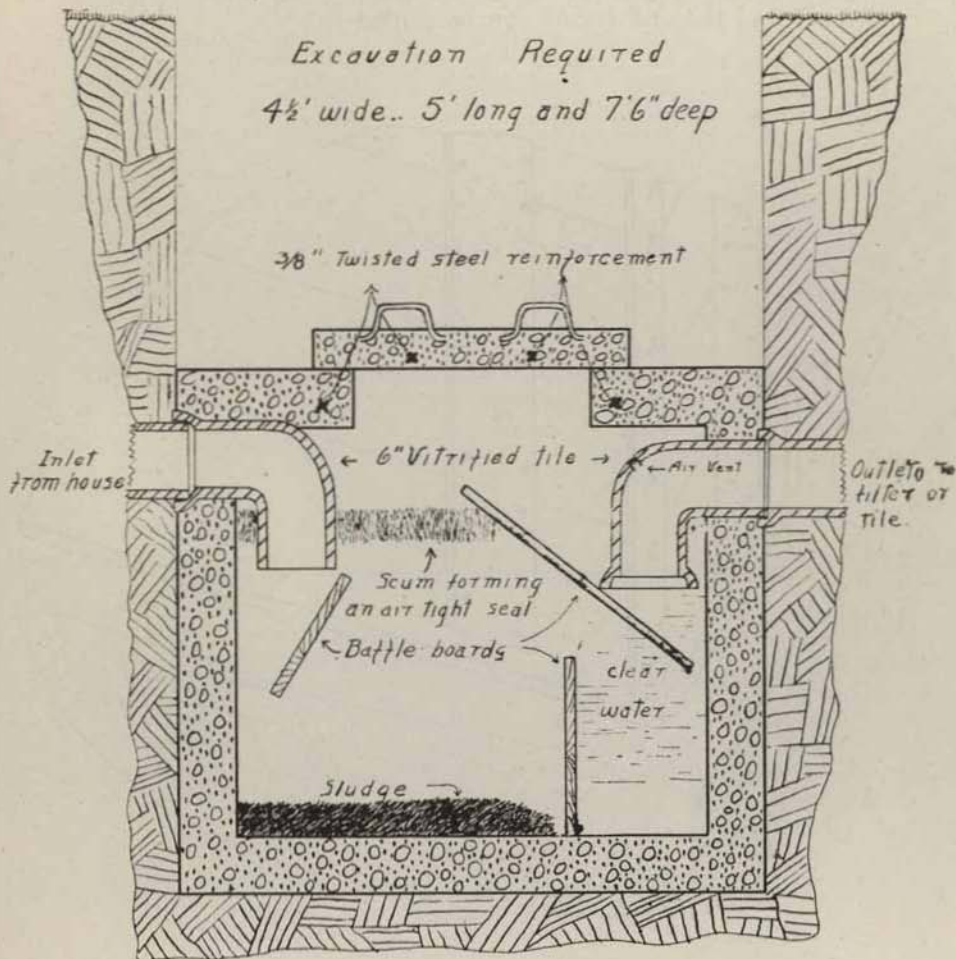 Excavation Required
4½' wide.. 5' long and 7'6" deep
3/8" Twisted steel reinforcement
Inlet
from house
6" Vitrified tile
Air Vent
Outlet to
filter or
tile.
Scum forming
an air tight seal
Baffle boards
clear
water
Sludge